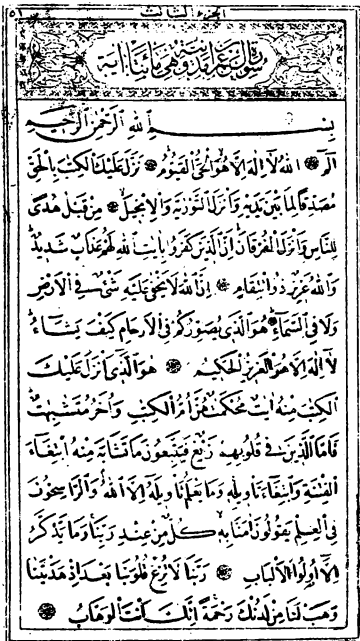 ٥١ الجزء الثالث
سورة آل عمران مدنية وهي مائتا آية
بِسْمِ اللهِ الرَّحْمٰنِ الرَّحِيمِ
الٓمٓ اللهُ لَا إِلٰهَ إِلَّا هُوَ الْحَيُّ الْقَيُّومُ نَزَّلَ عَلَيْكَ الْكِتٰبَ بِالْحَقِّ
مُصَدِّقًا لِمَا بَيْنَ يَدَيْهِ وَأَنْزَلَ التَّوْرٰيةَ وَالْإِنْجِيلَ مِنْ قَبْلُ هُدًى
لِلنَّاسِ وَأَنْزَلَ الْفُرْقَانَ إِنَّ الَّذِينَ كَفَرُوا بِاٰيَاتِ اللهِ لَهُمْ عَذَابٌ شَدِيدٌ
وَاللهُ عَزِيزٌ ذُو انْتِقَامٍ إِنَّ اللهَ لَا يَخْفٰى عَلَيْهِ شَيْءٌ فِي الْأَرْضِ
وَلَا فِي السَّمَاءِ هُوَ الَّذِي يُصَوِّرُكُمْ فِي الْأَرْحَامِ كَيْفَ يَشَاءُ
لَا إِلٰهَ إِلَّا هُوَ الْعَزِيزُ الْحَكِيمُ هُوَ الَّذِي أَنْزَلَ عَلَيْكَ
الْكِتٰبَ مِنْهُ اٰيَاتٌ مُحْكَمَاتٌ هُنَّ أُمُّ الْكِتٰبِ وَأُخَرُ مُتَشَابِهَاتٌ
فَأَمَّا الَّذِينَ فِي قُلُوبِهِمْ زَيْغٌ فَيَتَّبِعُونَ مَا تَشَابَهَ مِنْهُ ابْتِغَاءَ
الْفِتْنَةِ وَابْتِغَاءَ تَأْوِيلِهِ وَمَا يَعْلَمُ تَأْوِيلَهُ إِلَّا اللهُ وَالرَّاسِخُونَ
فِي الْعِلْمِ يَقُولُونَ اٰمَنَّا بِهِ كُلٌّ مِنْ عِنْدِ رَبِّنَا وَمَا يَذَّكَّرُ
إِلَّا أُولُوا الْأَلْبَابِ رَبَّنَا لَا تُزِغْ قُلُوبَنَا بَعْدَ إِذْ هَدَيْتَنَا
وَهَبْ لَنَا مِنْ لَدُنْكَ رَحْمَةً إِنَّكَ أَنْتَ الْوَهَّابُ